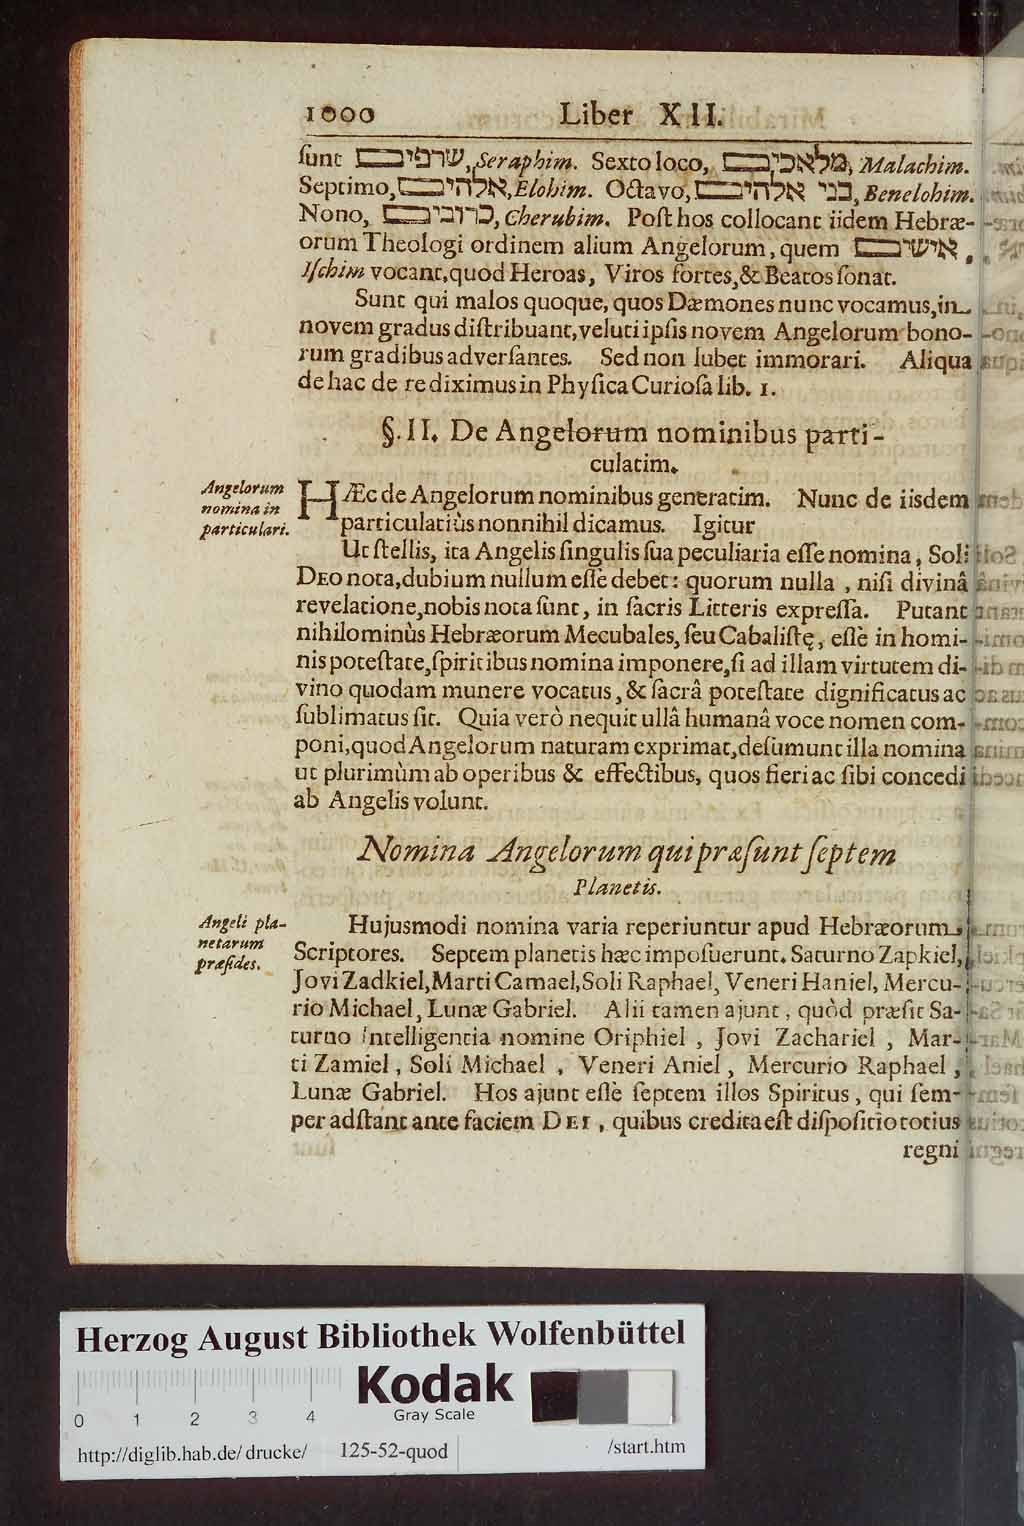 1000 Liber XII.
ſunt שרפים, Seraphim. Sexto loco, מלאכים, Malachim.
Septimo, אלהים, Elohim. Octavo, בני אלהים, Benelohim.
Nono, כרובים, Cherubim. Poſt hos collocant iidem Hebræ-
orum Theologi ordinem alium Angelorum, quem אישים,
Iſchim vocant, quod Heroas, Viros fortes, & Beatos ſonat.
Sunt qui malos quoque, quos Dæmones nunc vocamus, in
novem gradus diſtribuant, veluti ipſis novem Angelorum bono-
rum gradibus adverſantes. Sed non lubet immorari. Aliqua
de hac de re diximus in Phyſica Curioſa lib. 1.
§. II. De Angelorum nominibus parti-
culatim.
Angelorum
nomina in
particulari.
HÆc de Angelorum nominibus generatim. Nunc de iisdem
particulatiùs nonnihil dicamus. Igitur
Ut ſtellis, ita Angelis ſingulis ſua peculiaria eſſe nomina, Soli
DEO nota, dubium nullum eſſe debet: quorum nulla, niſi divinâ
revelatione, nobis nota ſunt, in ſacris Litteris expreſſa. Putant
nihilominùs Hebræorum Mecubales, ſeu Cabaliſtę, eſſe in homi-
nis poteſtate, ſpiritibus nomina imponere, ſi ad illam virtutem di-
vino quodam munere vocatus, & ſacrâ poteſtate dignificatus ac
ſublimatus ſit. Quia verò nequit ullâ humanâ voce nomen com-
poni, quod Angelorum naturam exprimat, deſumunt illa nomina
ut plurimùm ab operibus & effectibus, quos fieri ac ſibi concedi
ab Angelis volunt.
Nomina Angelorum qui præſunt ſeptem
Planetis.
Angeli pla-
netarum
præſides.
Hujusmodi nomina varia reperiuntur apud Hebræorum
Scriptores. Septem planetis hæc impoſuerunt. Saturno Zapkiel,
Jovi Zadkiel, Marti Camael, Soli Raphael, Veneri Haniel, Mercu-
rio Michael, Lunæ Gabriel. Alii tamen ajunt, quòd præſit Sa-
turno intelligentia nomine Oriphiel, Jovi Zachariel, Mar-
ti Zamiel, Soli Michael, Veneri Aniel, Mercurio Raphael,
Lunæ Gabriel. Hos ajunt eſſe ſeptem illos Spiritus, qui ſem-
per adſtant ante faciem DEI, quibus credita eſt diſpoſitio totius
regni
Herzog August Bibliothek Wolfenbüttel
Kodak
Gray Scale
0 1 2 3 4
http://diglib.hab.de/drucke/ 125-52-quod /start.htm